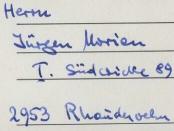 Herrn
Jürgen Morien
I. Südwieke 89
2953 Rhauderfehn